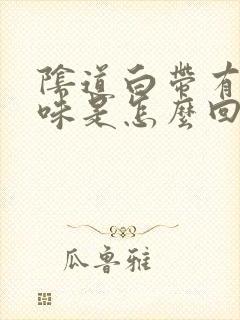 陰道白帶有
味是怎麼回
瓜魯雅